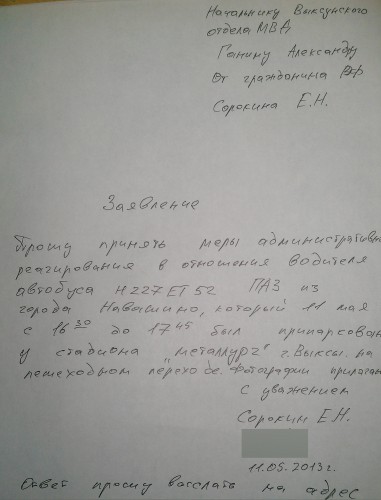 Начальнику Выксунского
отдела МВА
Ганину Александру
От гражданина РФ
Сорокина Е.Н.
Заявление
Прошу принять меры административно
реагирования в отношении водителя
автобуса Н227ЕТ52 ПАЗ из
города Навашино, который 11 мая
с 16 30 до 17 45 был припаркован
у стадиона "металлург" г. Выксы. на
пешеходном переходе. Фотографии прилага
с уважением
Сорокин Е.Н.
11.05.2013г.
Ответ прошу выслать на адрес